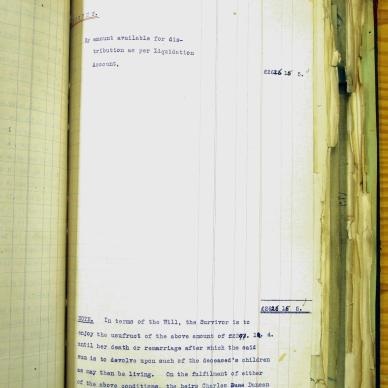 By amount available for dis-
tribution as per Liquidation
Account.
NOTE. In terms of the Will, the Survivor is to
enjoy the usufruct of the above amount of
until her death or remarriage after which the said
sum is to devolve upon such of the deceased's children
as may then be living. On the fulfilment of either
of the above conditions, the heirs Charles Duncan